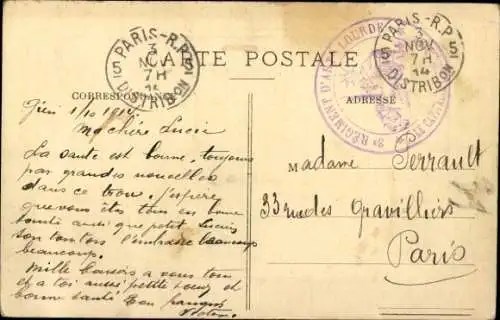 PARIS-R.P.
3
NOV
5 7H 51
14
DISTRIBON
PARIS-R.P.
3
NOV
5 7H 51
14
DISTRIBON
CARTE POSTALE
LOURDE
3e RÉGIMENT D'ART
CORRESPONDANCE
ADRESSE
1/10 1914
Ma chère Lucie
La santé est bonne, toujours
pas grandes nouvelles
dans ce trou. J'espère
que vous êtes tous en bonne
santé ainsi que petit Lucien
son tonton l'embrasse beaucoup
beaucoup.
Mille baisers a vous tous
et a toi aussi petite soeur et
bonne santé Ton
Madame Serrault
33 rue des Gravilliers
Paris